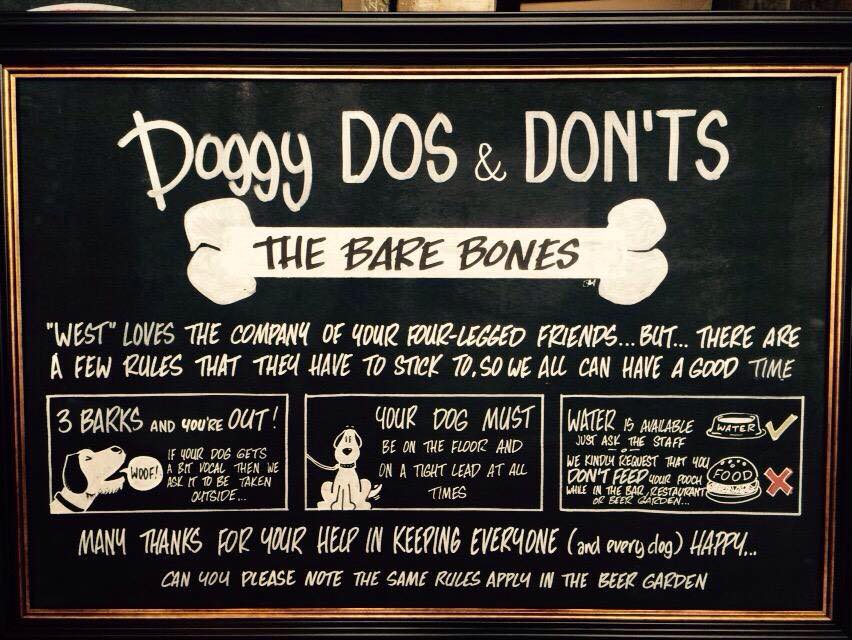 Doggy DOS & DON'TS
THE BARE BONES
"WEST" LOVES THE COMPANY OF YOUR FOUR-LEGGED FRIENDS... BUT... THERE ARE
A FEW RULES THAT THEY HAVE TO STICK TO, SO WE ALL CAN HAVE A GOOD TIME
3 BARKS AND YOU'RE OUT!
IF YOUR DOG GETS
A BIT VOCAL THEN WE
ASK IT TO BE TAKEN
OUTSIDE...
WOOF!
YOUR DOG MUST
BE ON THE FLOOR AND
ON A TIGHT LEAD AT ALL
TIMES
WATER IS AVAILABLE
JUST ASK THE STAFF
WATER
WE KINDLY REQUEST THAT YOU
DON'T FEED YOUR POOCH
WHILE IN THE BAR, RESTAURANT
OR BEER GARDEN...
FOOD
MANY THANKS FOR YOUR HELP IN KEEPING EVERYONE (and every dog) HAPPY...
CAN YOU PLEASE NOTE THE SAME RULES APPLY IN THE BEER GARDEN